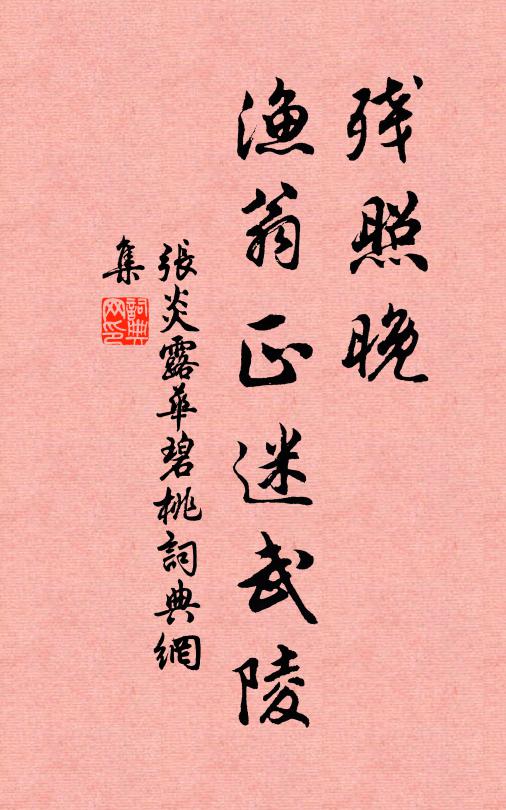 残照晚
漁翁正迷武陵
張炎露華碧桃詞典網
集
詞典網印